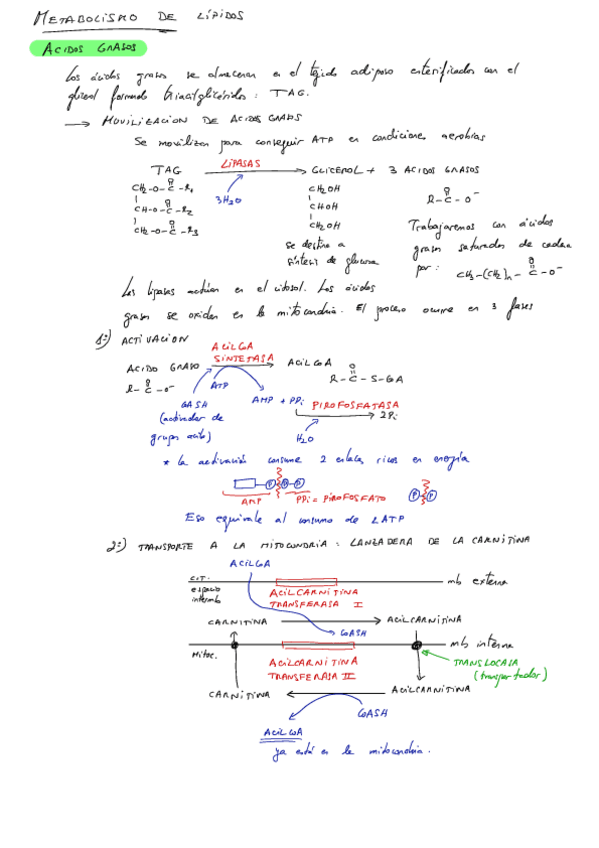 METABOLISMO DE LÍPIDOS
ACIDOS GRASOS
Los ácidos grasos se almacenan en el tejido adiposo esterificados con el
glicerol formando triacilglicéridos: TAG.
→ MOVILIZACION DE ACIDOS GRASOS
Se movilizan para conseguir ATP en condiciones aerobias
TAG LIPASAS → GLICEROL + 3 ACIDOS GRASOS
3H2O
CH2-O-C-R1 CH2OH R-C-O-
CH-O-C-R2 CHOH
CH2-O-C-R3 CH2OH
Se destina a
síntesis de glucosa
Trabajaremos con ácidos
grasos saturados de cadena
par: CH3-(CH2)n-C-O-
Las lipasas actúan en el citosol. Los ácidos
grasos se oxidan en la mitocondria. El proceso ocurre en 3 fases
1º) ACTIVACION
ACIL CoA
SINTETASA
ACIDO GRASO → ACIL CoA
R-C-O- R-C-S-CoA
ATP
CoASH AMP + PPi PIROFOSFATASA → 2Pi
(activador de
grupos acilo) H2O
* La activación consume 2 enlaces ricos en energía
P P P P P
AMP PPi = PIROFOSFATO
Eso equivale al consumo de 2ATP
2º) TRANSPORTE A LA MITOCONDRIA: LANZADERA DE LA CARNITINA
ACIL CoA
CIT. mb externa
espacio
intermb
ACILCARNITINA
TRANSFERASA I
CARNITINA → ACILCARNITINA
CoASH
mb interna
MITOC.
ACILCARNITINA
TRANSFERASA II
TRANSLOCASA
(transportador)
CARNITINA ← ACILCARNITINA
CoASH
ACIL CoA
ya está en la mitocondria.